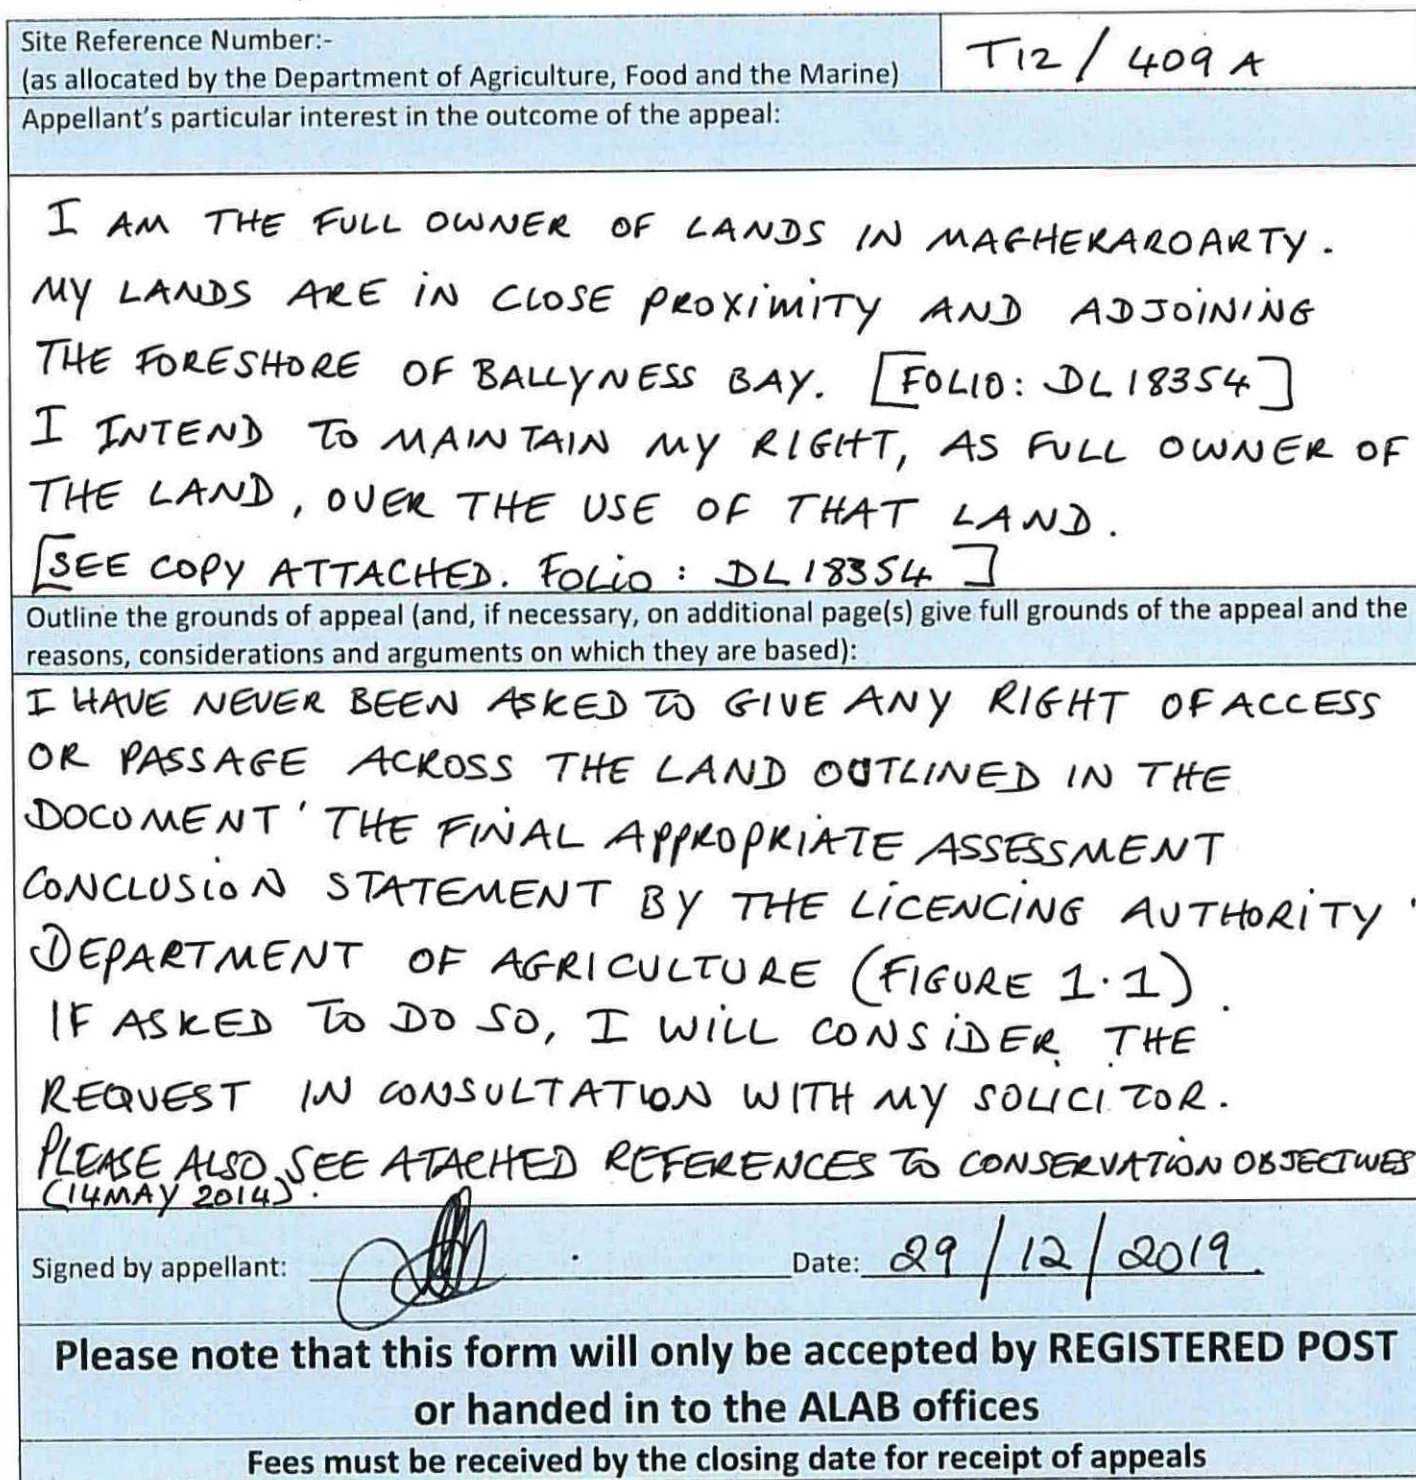 Site Reference Number:-
(as allocated by the Department of Agriculture, Food and the Marine)
T12 / 409 A
Appellant's particular interest in the outcome of the appeal:
I AM THE FULL OWNER OF LANDS IN MAGHERAROARTY.
MY LANDS ARE IN CLOSE PROXIMITY AND ADJOINING
THE FORESHORE OF BALLYNESS BAY. [FOLIO: DL18354]
I INTEND TO MAINTAIN MY RIGHT, AS FULL OWNER OF
THE LAND, OVER THE USE OF THAT LAND.
[SEE COPY ATTACHED. FOLIO: DL18354]
Outline the grounds of appeal (and, if necessary, on additional page(s) give full grounds of the appeal and the
reasons, considerations and arguments on which they are based):
I HAVE NEVER BEEN ASKED TO GIVE ANY RIGHT OF ACCESS
OR PASSAGE ACROSS THE LAND OUTLINED IN THE
DOCUMENT 'THE FINAL APPROPRIATE ASSESSMENT
CONCLUSION STATEMENT BY THE LICENCING AUTHORITY'
DEPARTMENT OF AGRICULTURE (FIGURE 1.1).
IF ASKED TO DO SO, I WILL CONSIDER THE
REQUEST IN CONSULTATION WITH MY SOLICITOR.
PLEASE ALSO SEE ATACHED REFERENCES TO CONSERVATION OBJECTIVES
(14MAY 2014).
Signed by appellant: Date: 29/12/2019.
Please note that this form will only be accepted by REGISTERED POST
or handed in to the ALAB offices
Fees must be received by the closing date for receipt of appeals